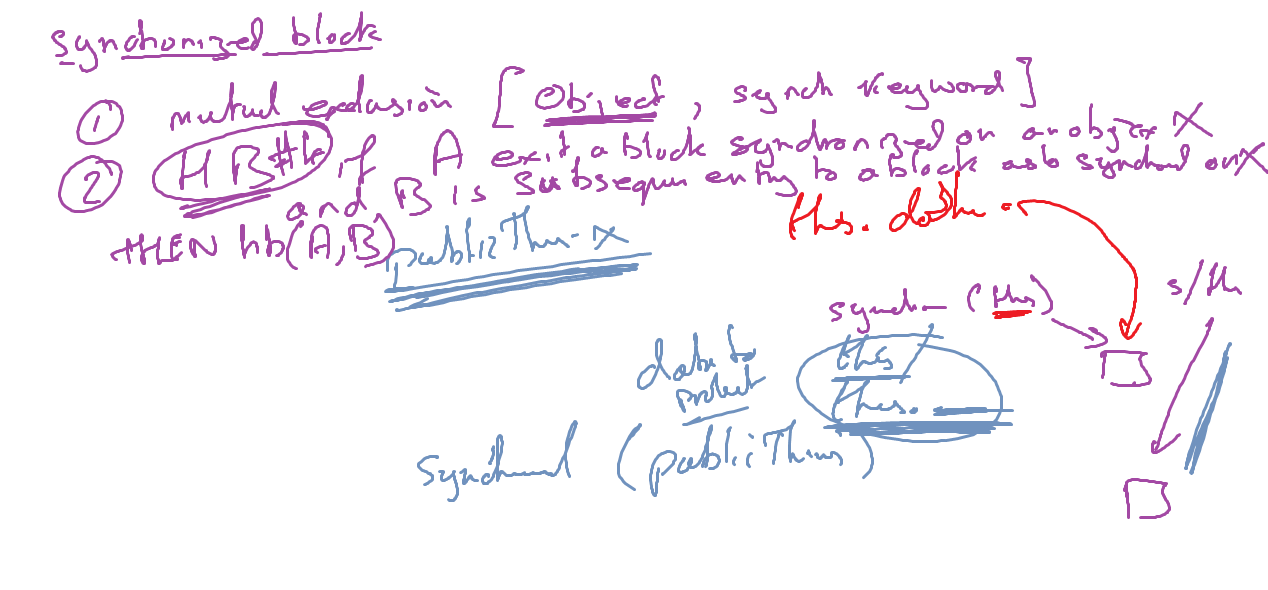 synchonized block
① mutual exclusion [ Object, synch keyword ]
② HB#k if A exit a block synchronized on an object X
and B is subsequen entry to a block also synchrd on X
THEN hb(A,B)
publicThi-x
this.
synchr (this)
s/th
data to
protect
this
this.
(publicThis)